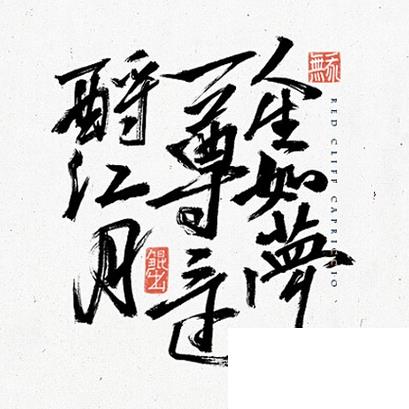 人生如夢
一尊還
酹江月
RED CLIFF CAPRICCIO